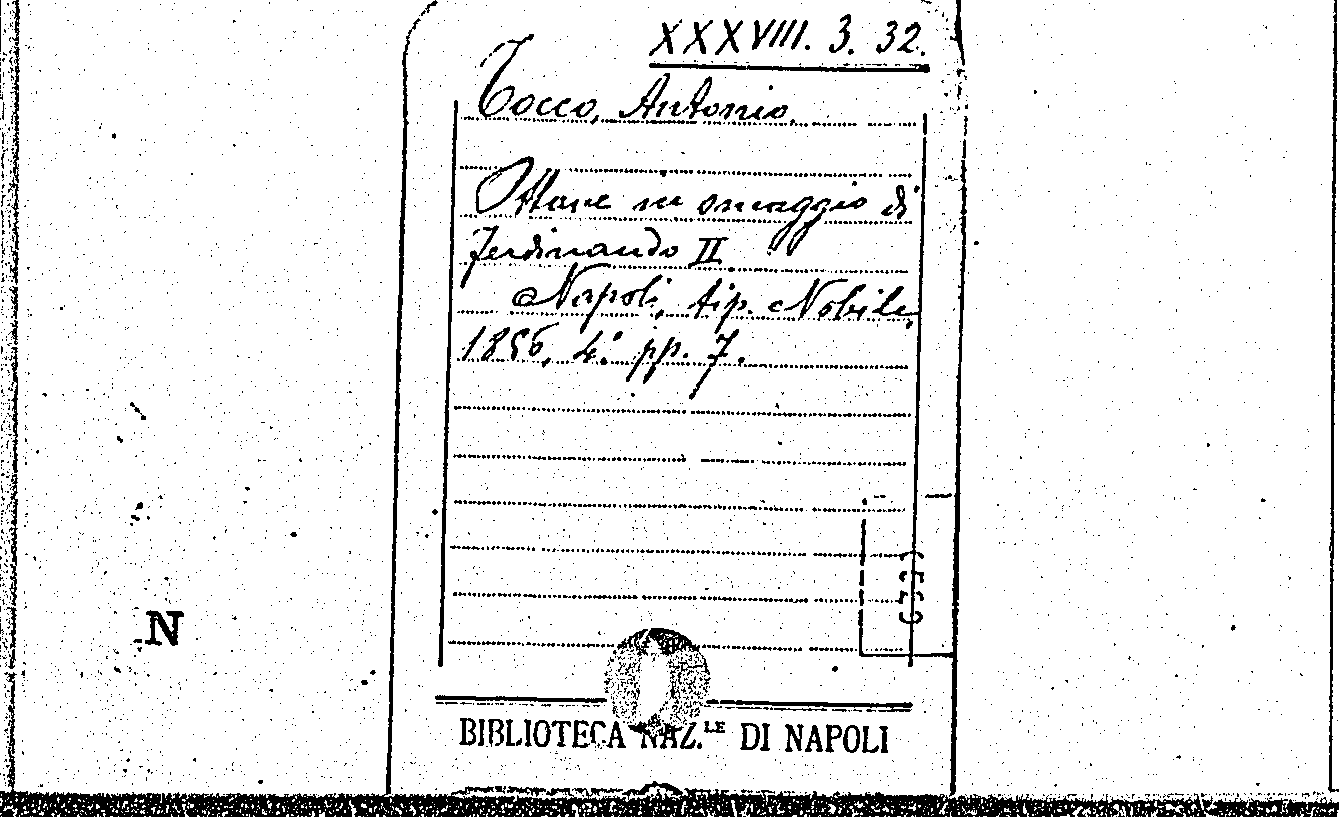 XXXVIII. 3. 32.
Tocco, Antonio.
Ottave in omaggio di
Ferdinando II
Napoli, tip. Nobile,
1856, 4.° pp. 7.
N
BIBLIOTECA NAZ.LE DI NAPOLI